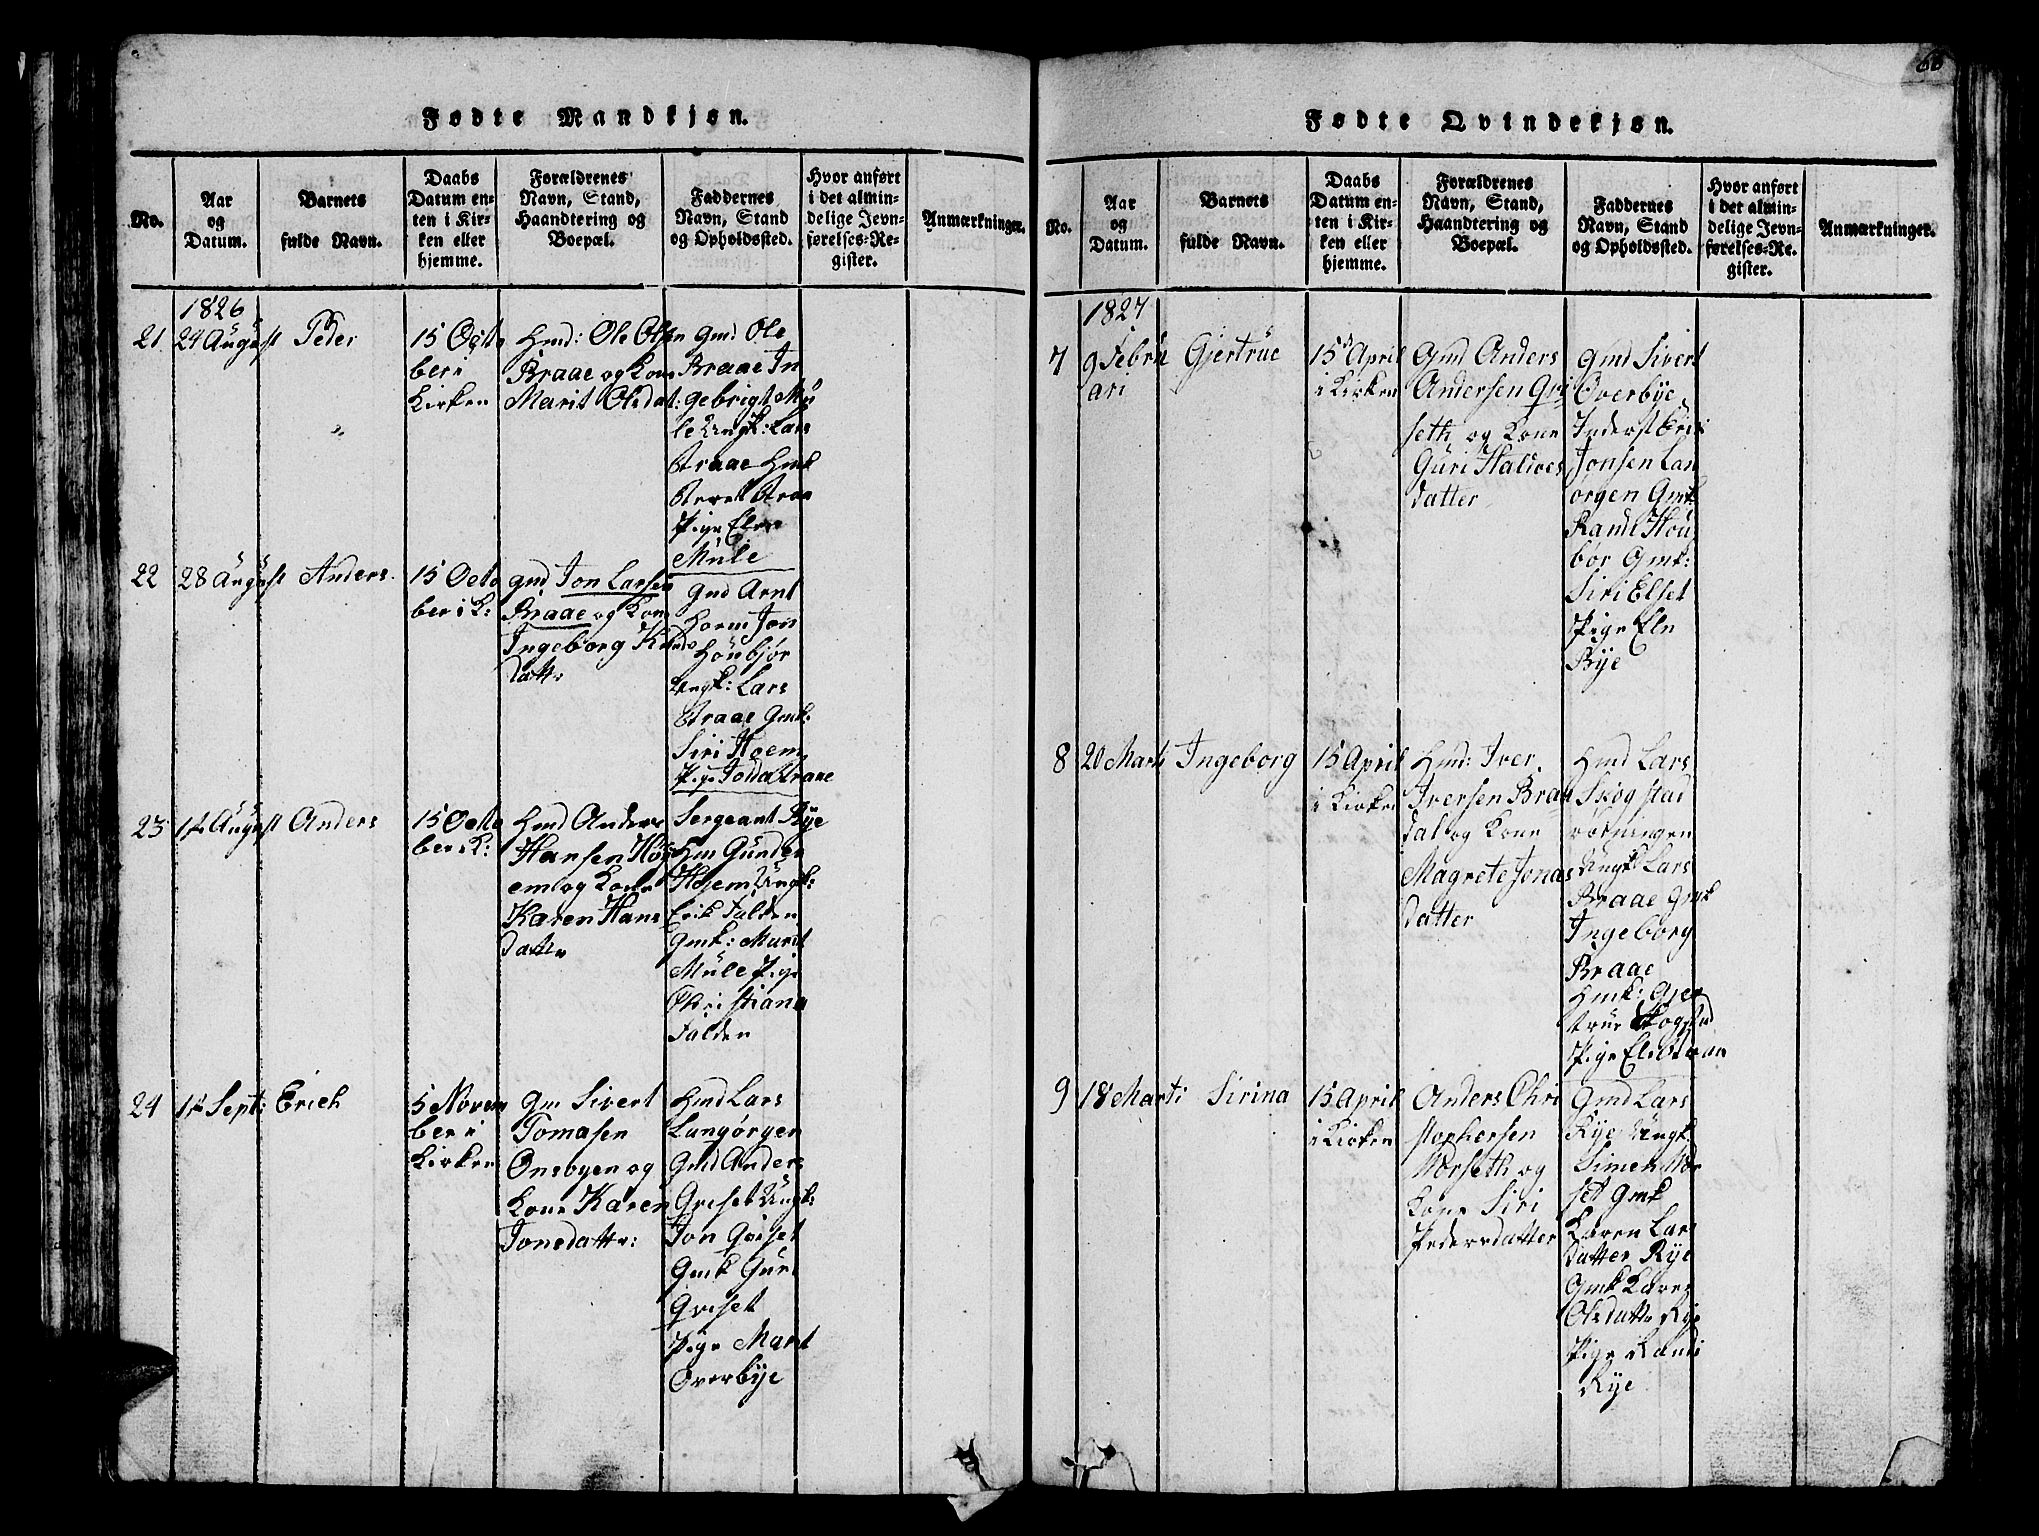 Fødte Mandkjøn.
No.
Aar
og
Datum.
Barnets
fulde Navn.
Daabs
Datum en-
ten i Kir-
ken eller
hjemme.
Forældrenes
Navn, Stand,
Haandtering og
Boepæl.
Faddernes
Navn, Stand
og Opholdssted.
Hvor anført
i det almin-
delige Jevn-
førelses-Re-
gister.
Anmærkninger.
1826
21
29 August
Peder
15 Octo
ber i
Kirken
Hmd: Ole Olsen
Braae og Kone
Marit Olsdat:
Gmd Ole
Braae In
gebrigt Mü
le Ungk: Lars
Braae Hmk
Braa
Pige Elen
Müle
22
28 August
Anders
15 Octo
ber i K:
gmd Jon Larsen
Braae og Kone
Ingeborg Knuds
datter
Gmd Arnt
Horm Jon
Höubjør
Ungk: Lars
Braae Gmk:
Siri Hoem
Pige Braae
23
August
Anders
15 Octo
ber i K:
Hmd Anders
Hansen Hoj
em og Kone
Karen Hans
datter
Sergeant Rye
Hm Gunder
Hojem Ungk:
Erik Falden
Gmk: Marit
Müle Pige
Christiana
Falden
24
Sept:
Erich
5 Novem
ber i
Kirken
Gm Sivert
Tomasen
Onsbyen og
Kone Karen
Jonsdatter:
Hmd Lars
Langørgen
Gmd Anders
Griset Ungk:
Jon Griset
Gmk Guri
Griset
Pige Marit
Overbye
68
Fødte Qvindekjøn.
No.
Aar
og
Datum.
Barnets
fulde Navn.
Daabs
Datum en-
ten i Kir-
ken eller
hjemme.
Forældrenes
Navn, Stand,
Haandtering og
Boepæl.
Faddernes
Navn, Stand
og Opholdssted.
Hvor anført
i det almin-
delige Jevn-
førelses-Re-
gister.
Anmærkninger.
1827
7
9 Febru
ari
Gjertrue
15 April
i Kirken
Gmd Anders
Andersen Gri
seth og Kone
Guri Haldoes
datter
Gmd Sivert
Overbye
Inderst Erik
Jonsen Lan
ørgen Gmk
Randi Høu
bør Gmk:
Siri Elset
Pige Eln
Rye
8
20 Marti
Ingeborg
15 April
i Kirken
Hmd: Iver
Iversen Braa
dal og Kone
Magrete Jonas
datter
Hmd Lars
Skogstad
Ungk Lars
Braae Gmk
Ingeborg
Braae
Hmk: Gjer
true Skogstad
Pige Braae
9
18 Marti
Sirina
15 April
i Kirken
Anders Chri
stophersen
Norseth og
Kone Siri
Pedersdatter
Gmd Lars
Rye Ungk
Simen Nor
set Gmk
Karen Lars
datter Rye
Gmk Karen
Olsdatter Rye
Pige Randi
Rye